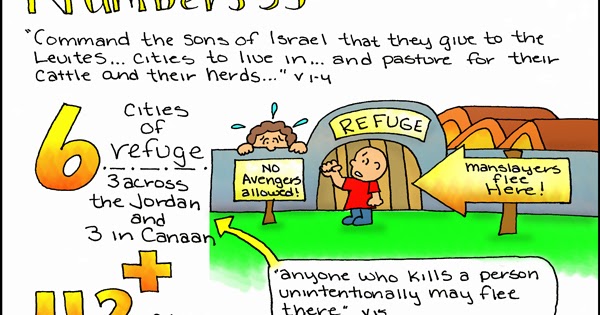 Numbers 35
"Command the sons of Israel that they give to the
Levites... cities to live in... and pasture for their
cattle and their herds..." v 1-4
6
cities
of
refuge
3 across
the Jordan
and
3 in Canaan
REFUGE
No
Avengers
allowed!
manslayers
flee
Here!
+
"anyone who kills a person
unintentionally may flee
there" v15